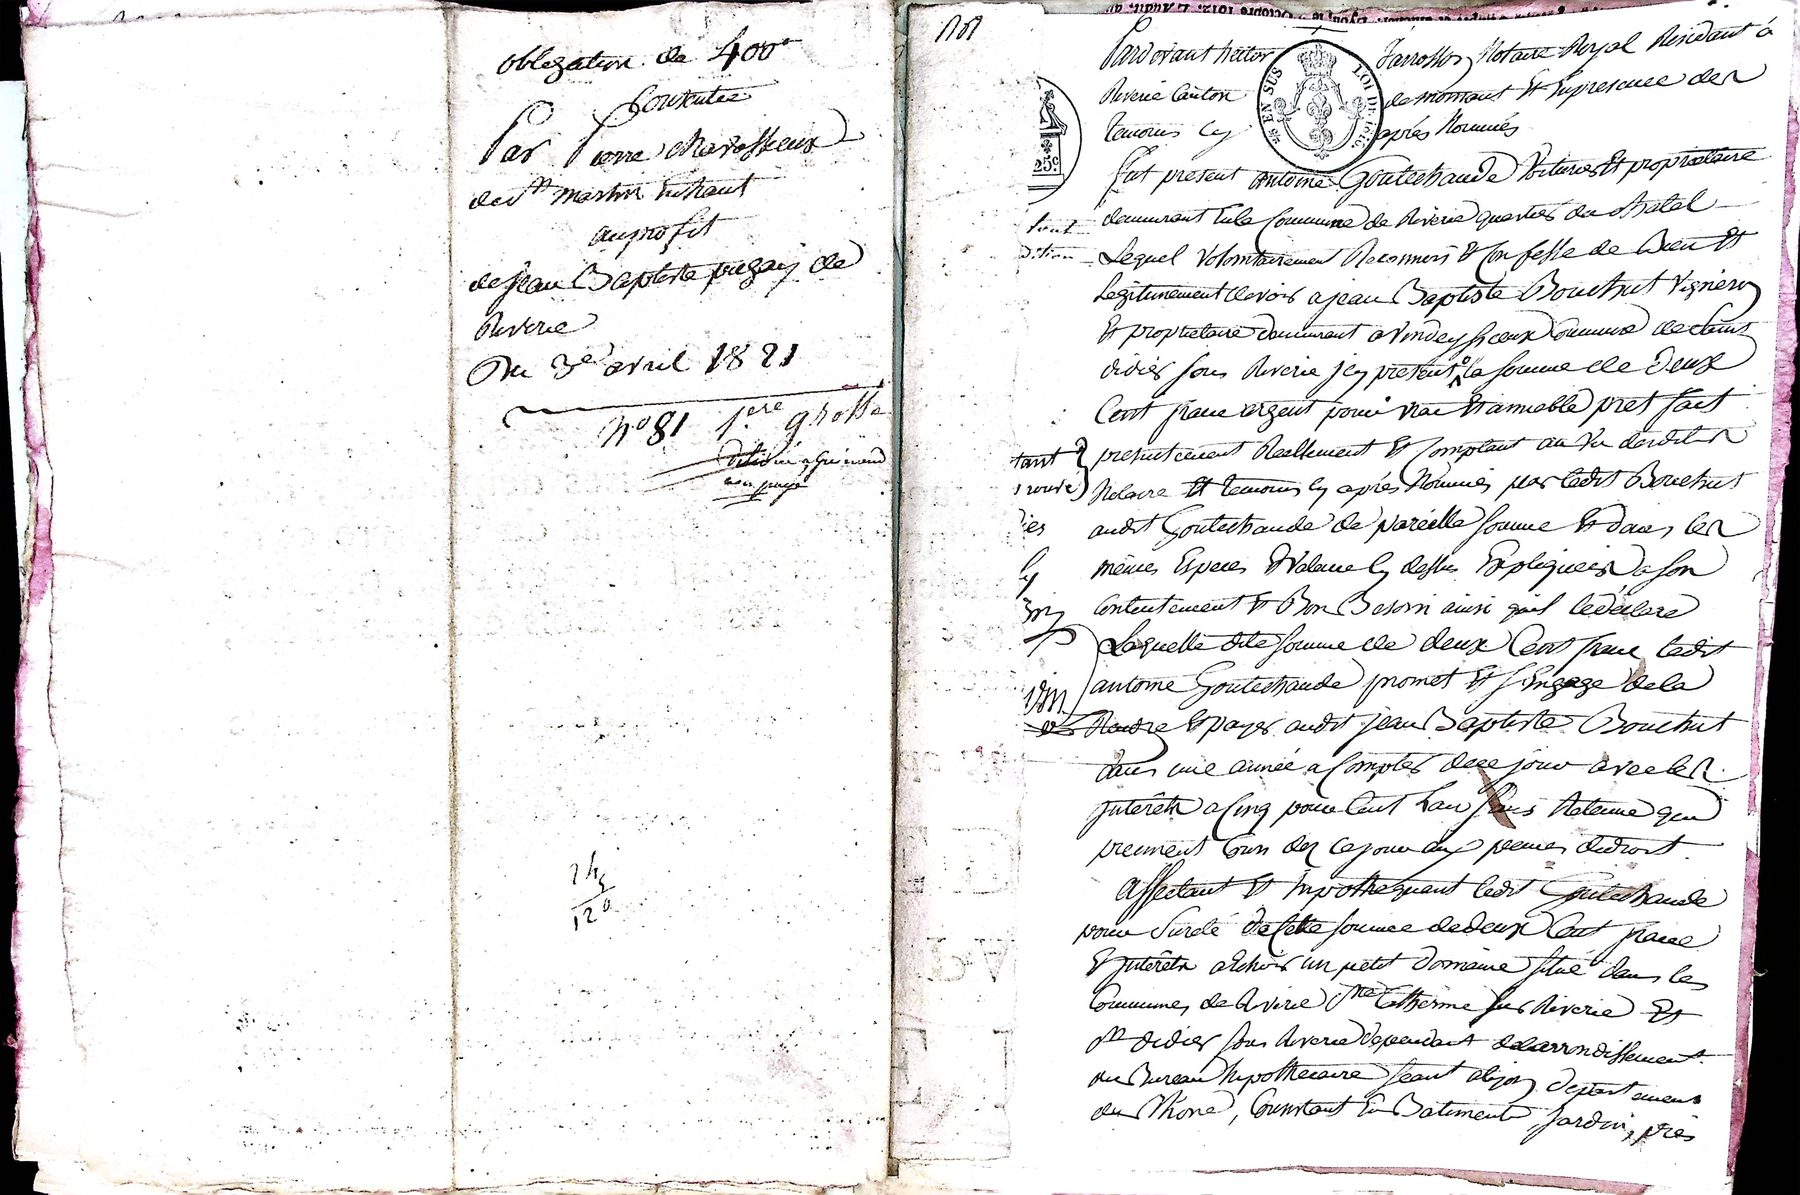 obligation de 400 f
Consentie
Par Pierre charassieux
de St martin Enhaut
auproffit
de jean Baptiste pugay de
Riverie
Du 3e avril 1821
No 81 1.ere grosse
non payé
24
120
Pardevant hector Jarrosson Notaire Royal Residant à
Riverie Canton de mornant Et Enpresence des
temoins Cy après Nommés
EN SUS LOI DE 1816
25c
Fut present Antoine Goutechaude Voiturier Et proprietaire
demeurant Enla Commune de Riverie quartier du chatel
Lequel Volontairement Reconnoit Et Confesse de Bien Et
Legitimement devoir a jean Baptiste Bouchut Vigneron
Et proprietaire demeurant a Vindeyssieux Commune de Saint
didier sous Riverie jcy present la somme de Deux
Cent franc argent pour vrai Et amiable pret fait
presentement Reellement Et Comptant au Vu desdits
Notaire Et temoins Cy après Nommés par ledit Bouchut
audit Goutechaude de pareille somme Et dans les
mêmes Especes Et Valeur Cy dessus Expliquées a son
Contentement Et Bon Besoin ainsi qu'il ledeclare
Laquelle dite somme de deux Cent franc ledit
antoine Goutechaude promet Et s'Engage de la
Rendre Et payer audit jean Baptiste Bouchut
dans une année a Compter dece jour avec les
jnterêts a Cinq pour Cent l'an sans Retenue qui
prennent Cours dez cejour aux peines dudroit.
Affectant Et hypothequant ledit Goutechaude
pour Sureté de Cette somme de deux Cent franc
Et jnterêts a Echoir un petit Domaine situé dans les
Communes de Riverie Ste Catherine sur Riverie Et
St didier sous Riverie dependant delarrondissement
du Bureau hypothecaire seant alyon departement
du Rhône, Consistant En Batiments, jardin, prés